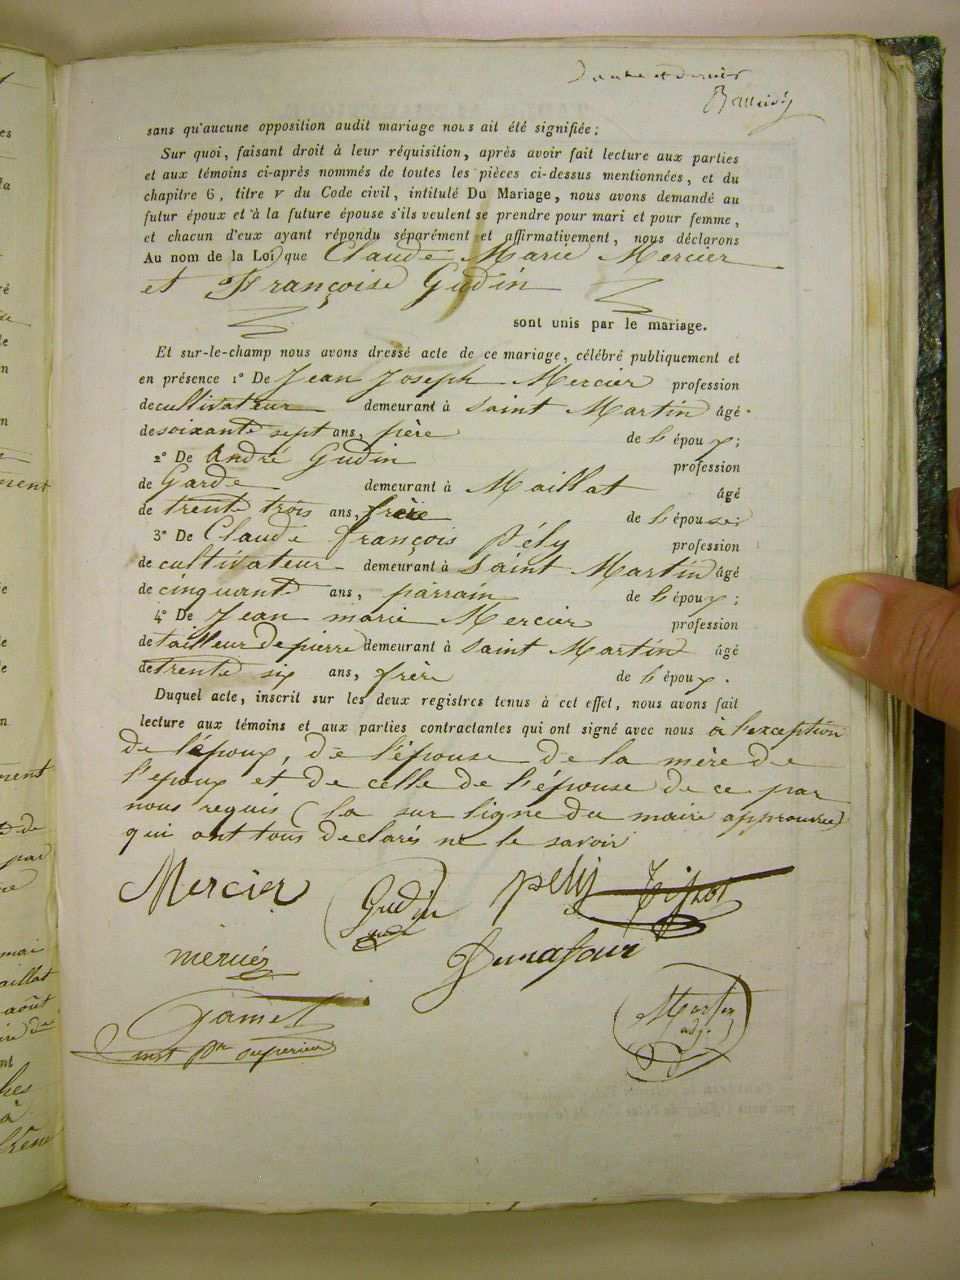 sans qu'aucune opposition audit mariage nous ait été signifiée;
Sur quoi, faisant droit à leur réquisition, après avoir fait lecture aux parties
et aux témoins ci-après nommés de toutes les pièces ci-dessus mentionnées, et du
chapitre 6, titre V du Code civil, intitulé Du Mariage, nous avons demandé au
futur époux et à la future épouse s'ils veulent se prendre pour mari et pour femme,
et chacun d'eux ayant répondu séparément et affirmativement, nous déclarons
Au nom de la Loi que Claude Marie Mercier
et Françoise Gudin
sont unis par le mariage.
Et sur-le-champ nous avons dressé acte de ce mariage, célébré publiquement et
en présence 1° De Jean Joseph Mercier profession
de cultivateur demeurant à Saint Martin âgé
de soixante sept ans, père de l'époux;
2° De André Gudin profession
de Garde demeurant à Maillat âgé
de trente trois ans, frère de l'épouse;
3° De Claude françois Pély profession
de cultivateur demeurant à Saint Martin âgé
de cinquante ans, parrain de l'époux;
4° De Jean marie Mercier profession
de tailleur de pierre demeurant à Saint Martin âgé
de trente six ans, frère de l'époux.
Duquel acte, inscrit sur les deux registres tenus à cet effet, nous avons fait
lecture aux témoins et aux parties contractantes qui ont signé avec nous à l'exception
de l'époux, de l'épouse de la mère de
l'epoux et de celle de l'épouse de ce par
nous requis (la sur ligne du maire approuvée)
qui ont tous déclarés ne le savoir
Mercier Gudin pely
mercier
Jamet
inst superieur
adj.